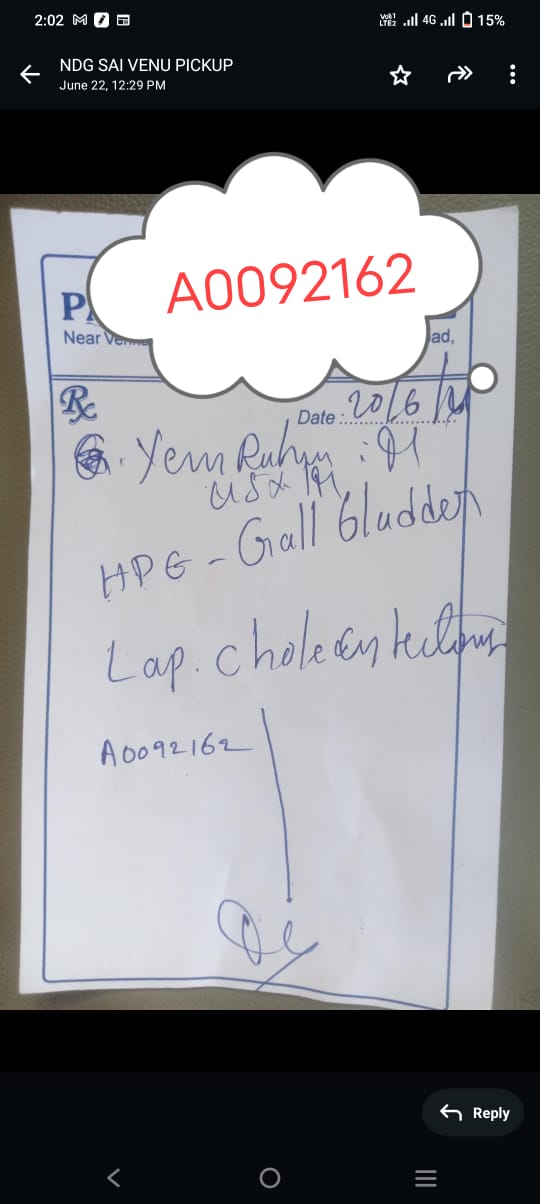 2:02
4G 15%
NDG SAI VENU PICKUP
June 22, 12:29 PM
A0092162
Near
ad,
Rx
Date : 20/6/
HPE - Gall bladder
Lap. cholecystectomy
A0092162
Reply